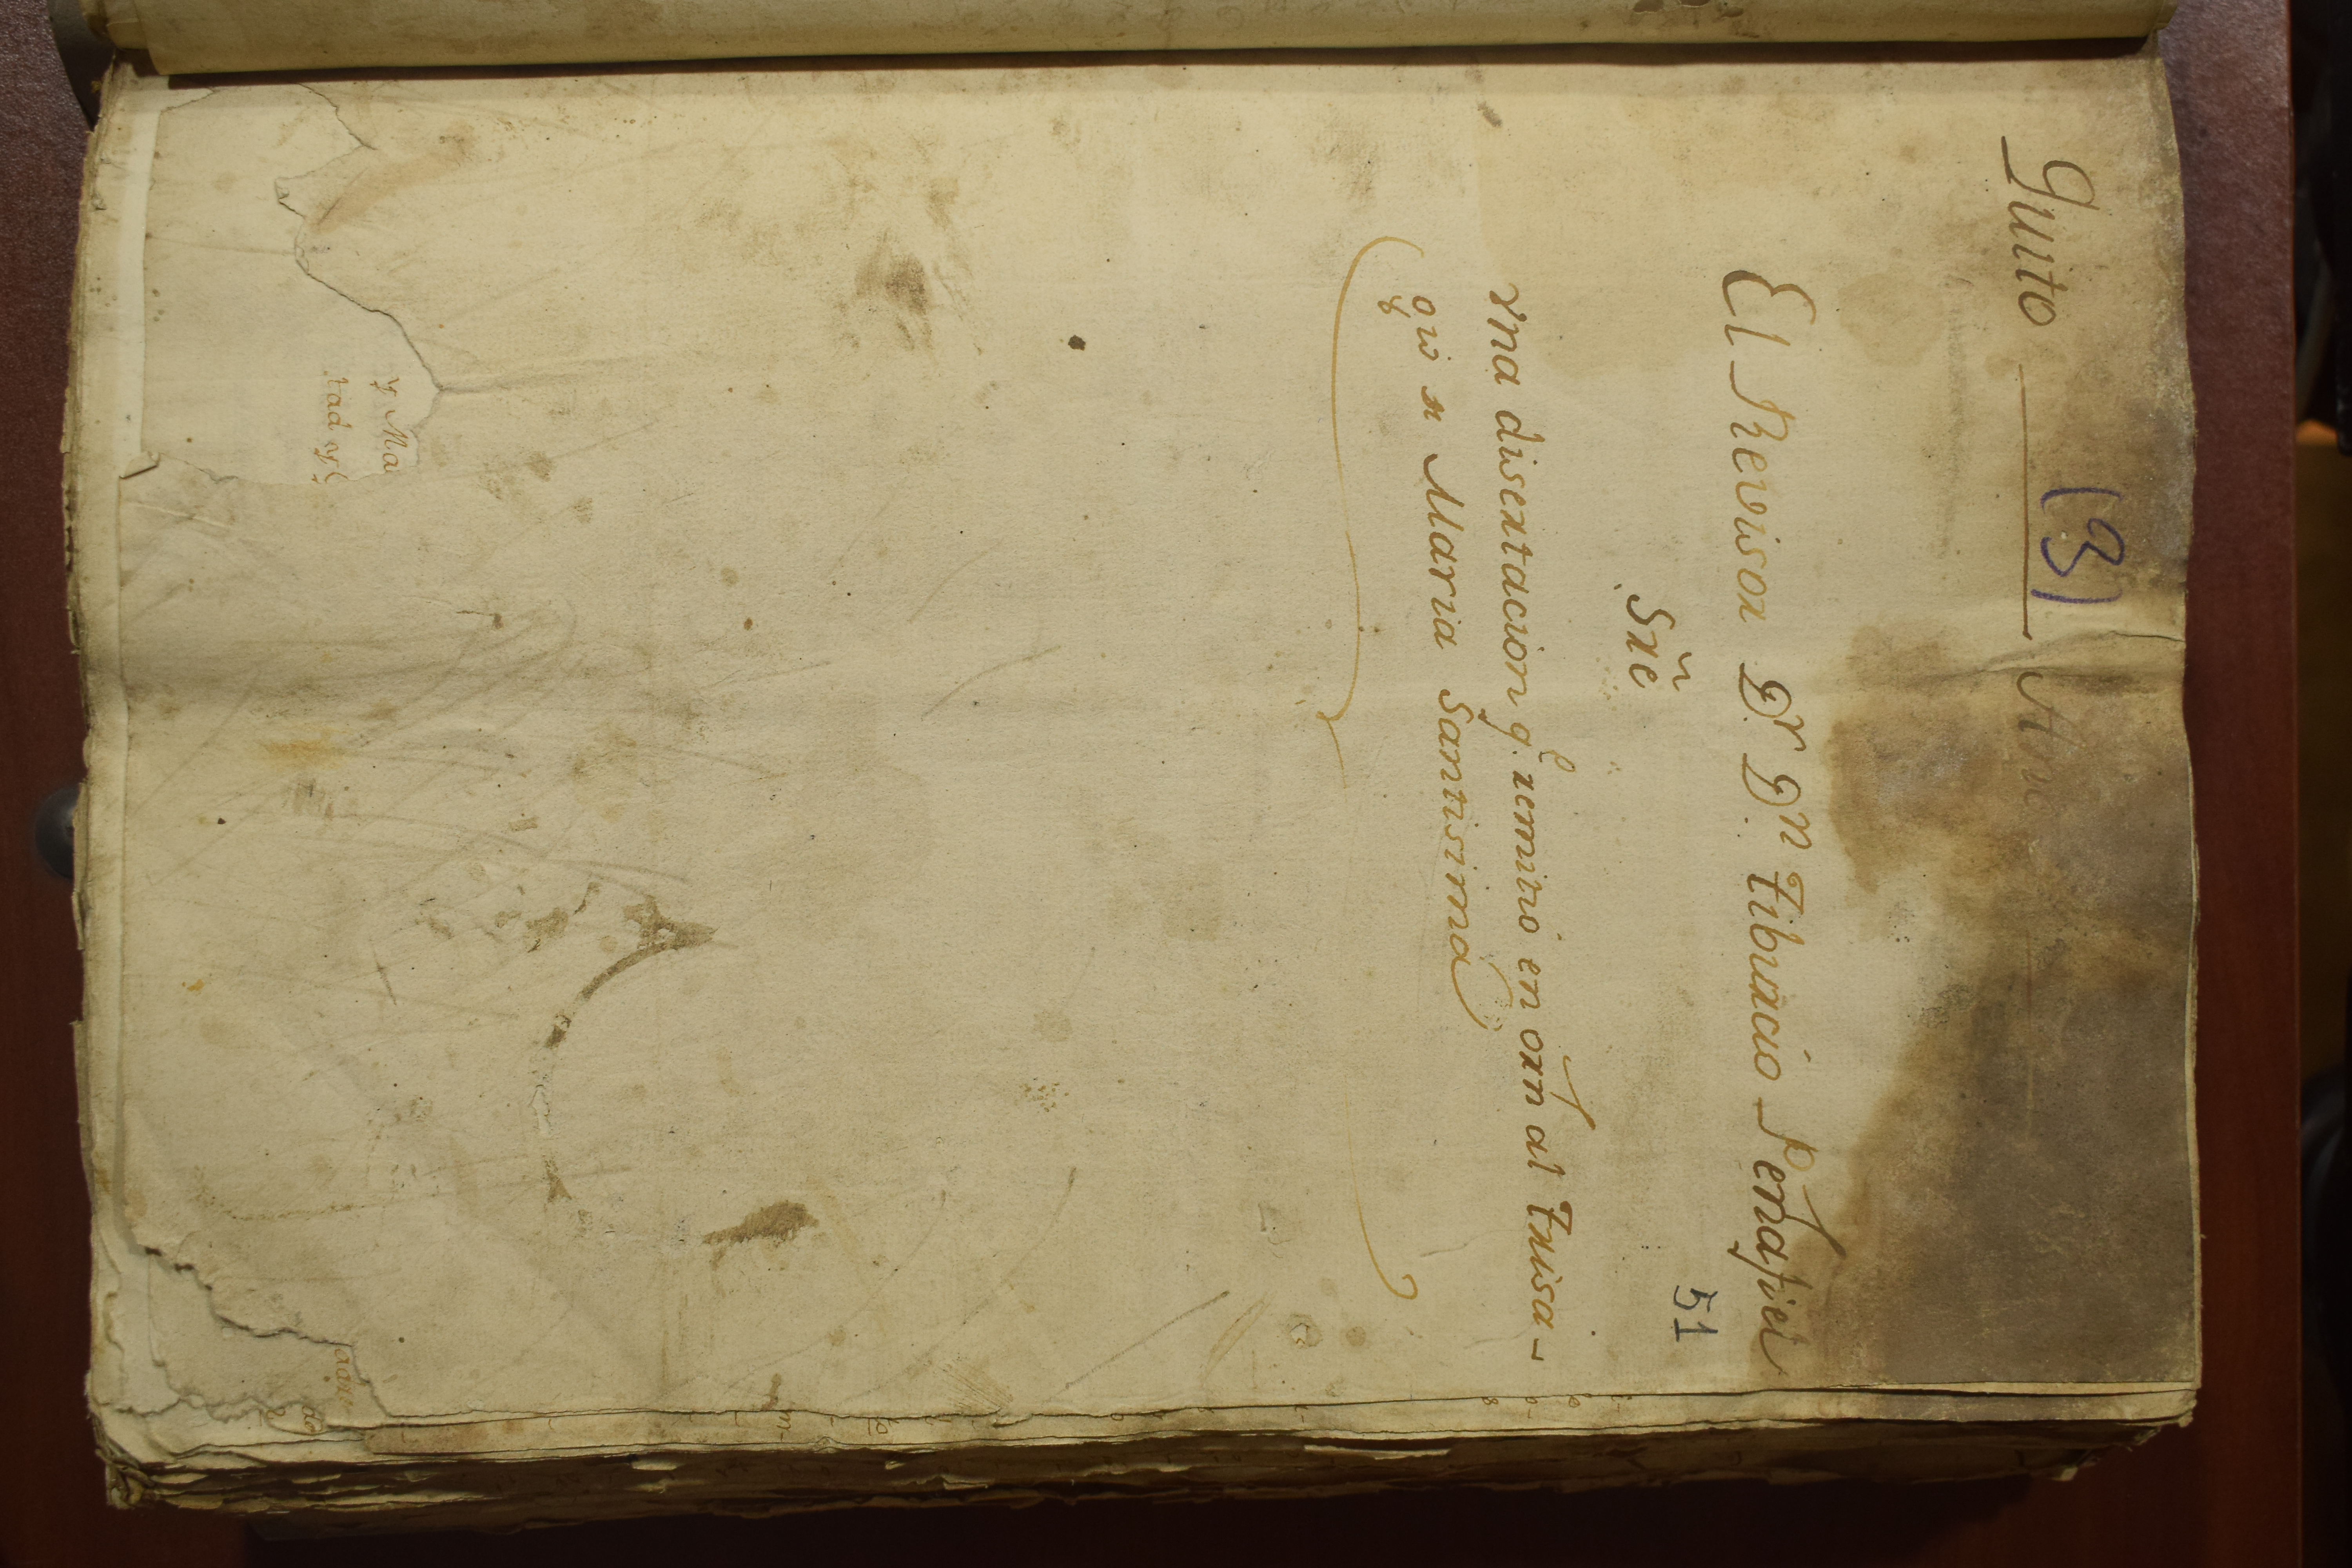 Quito (3) Año
El Revisor Dr Dn Tiburcio Peñafiel
Sre
vna disertacion q.e remitió en orn al Trisa-
gio d Maria Santisima
51
y Ma
tad y